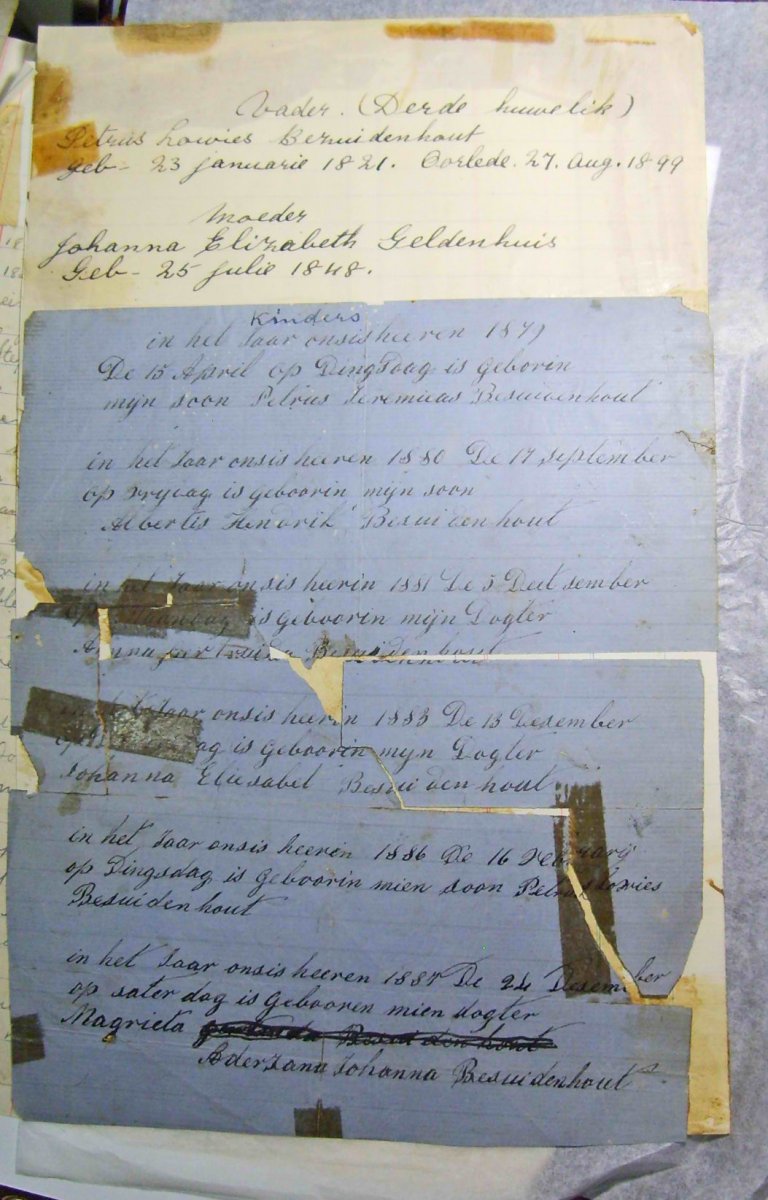 Vader. (Derde huwelik)
Petrus Lowies Bezuidenhout
geb- 23 januarie 1821. Oorlede. 27. Aug. 1899
Moeder
Johanna Elizabeth Geldenhuis
Geb- 25 julie 1848.
Kinders
in het Jaar onsis heeren 1879
De 15 April op Dingsdag is geborin
mijn soon Petrus Jeremieas Besuidenhout
in het Jaar onsis heeren 1880 De 17 september
op vrijdag is geboorin mijn soon
Albertis Hendrik Besuidenhout
in het Jaar onsis heerin 1881 De 5 Deitsember
op Maandag is geboorin mijn Dogter
Besuidenhout
Jaar onsis heerin 1883 De 13 Desember
is geboorin myn Dogter
Johanna Eliesabet Besuidenhout
in het Jaar onsis heeren 1886 De 16
op Dingsdag is geboorin mien soon Petrus Lowies
Besuidenhout
in het Jaar onsis heeren 1887 De 24 Desember
op sater dag is Gebooren mien dogter
Magrieta
Aderzana Johanna Besuidenhout